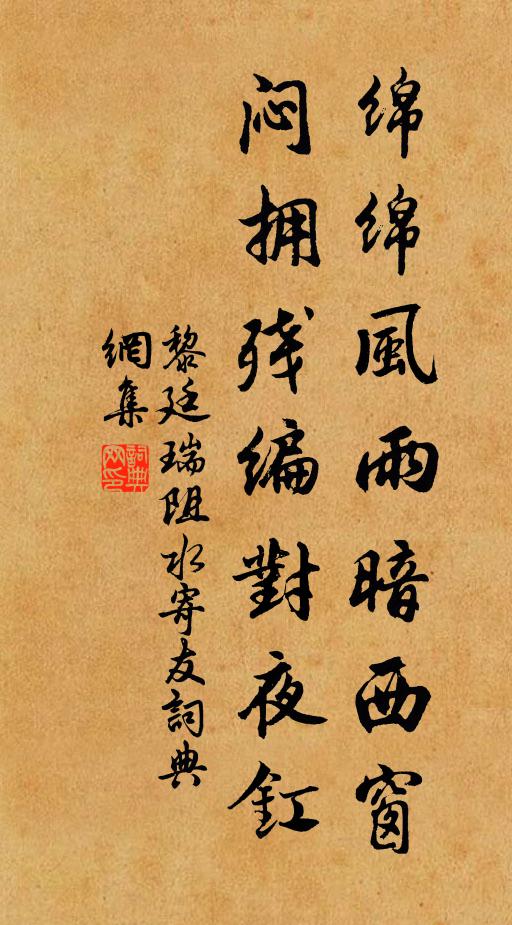 绵绵風雨暗西窗
闷拥残编對夜釭
黎廷瑞阻水寄友詞典
網集
詞典
网印